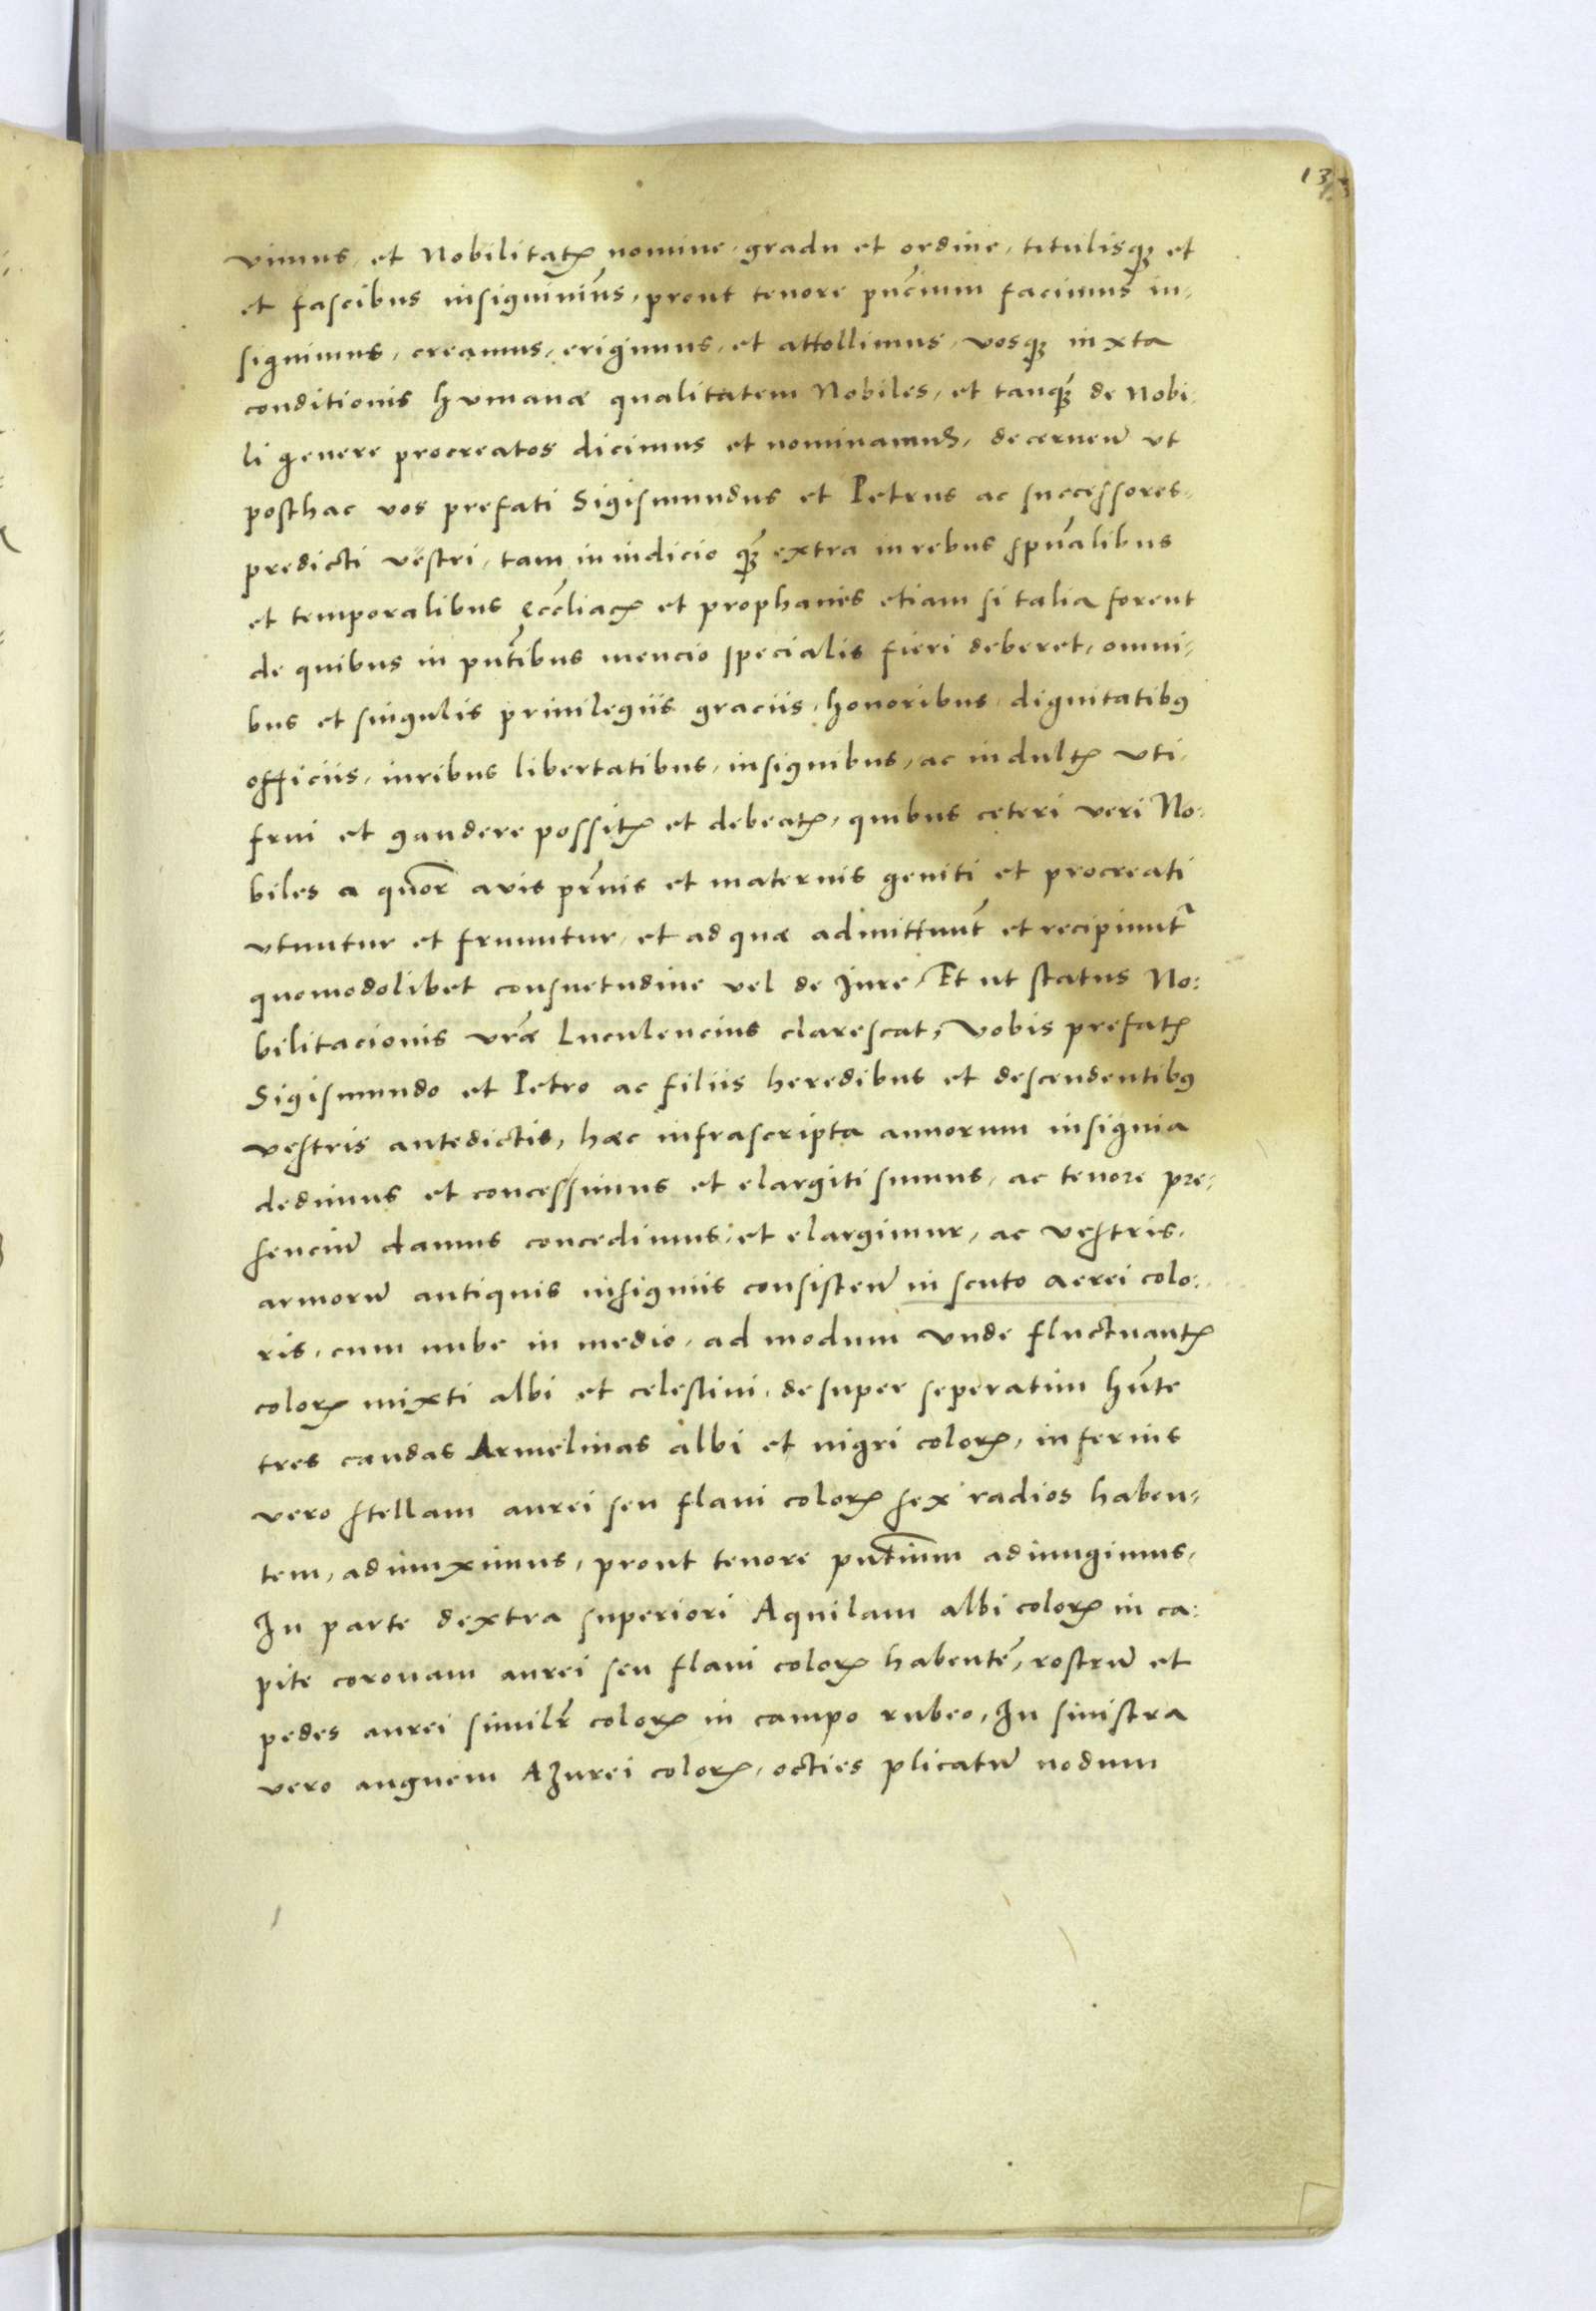 13
vimus, et Nobilitatꝭ nomine, gradu et ordine, titulisqꝫ et
et fascibus insigniuimꝰs, prout tenore pn̄cium facimus in-
signimus, creamus, erigimus, et attollimus, vosqꝫ iuxta
conditionis humanæ qualitatem Nobiles, et tanqꝫ̄ de Nobi-
li genere procreatos dicimus et nominamus, decernen̄ ut
posthac vos prefati Sigismundus et Petrus ac successores
predicti vestri, tam in iudicio qꝫ̄ extra in rebus spūalibus
et temporalibus Eccl̄iacꝭ et prophanis etiam si talia forent
de quibus in pn̄tibus mencio specialis fieri deberet, omni-
bus et singulis priuilegiis graciis, honoribus, dignitatibꝰ
officiis, iuribus libertatibus, insignibus, ac indultꝭ vti,
frui et gaudere possitꝭ et debeatꝭ, quibus ceteri veri No:
biles a quōr avis pr̄nis et maternis geniti et procreati
vtuntur et fruuntur, et ad quæ admittunt̄ et recipiunt̄
quomodolibet consuetudine vel de Jure, Et ut status No:
bilitacionis vr̄æ Luculencius clarescat, Vobis prefatꝭ
Sigismundo et Petro ac filiis heredibus et descendentibꝰ
vestris antedictis, hæc infrascripta armorum insignia
dedimus et concessimus et elargiti sumus, ac tenore pre-
senciū damus concedimus, et elargimur, ac vestris,
armorū antiquis insigniis consisten̄ in scuto aerei colo:
ris, cum nube in medio, ad modum unde fluctuantꝭ
colorꝭ mixti albi et celestini, desuper seperatim hn̄te
tres caudas Armelinas albi et nigri colorꝭ, inferius
vero stellam aurei seu flaui colorꝭ sex radios haben-
tem, adiunximus, prout tenore pn̄tium adiungimus,
In parte dextra superiori Aquilam albi colorꝭ in ca:
pite coronam aurei seu flaui colorꝭ habentē, rostrū et
pedes aurei simil̄r colorꝭ in campo rubeo, In sinistra
vero anguem Azurei colorꝭ, octies plicatū nodum